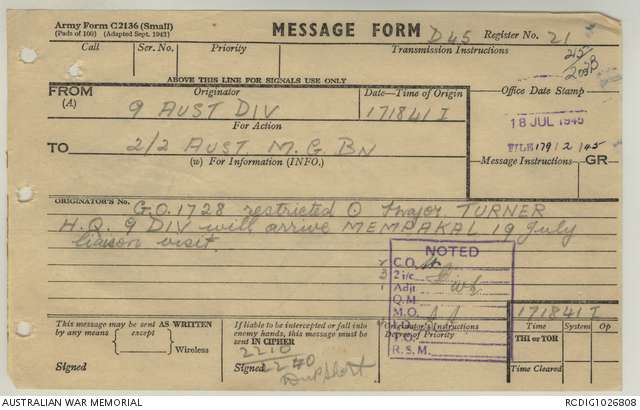 Army Form C2136 (Small)
(Pads of 100) (Adapted Sept. 1943)
MESSAGE FORM
D45 Register No. 21
Call Ser. No. Priority Transmission Instructions
ABOVE THIS LINE FOR SIGNALS USE ONLY
FROM Originator Date—Time of Origin Office Date Stamp
(A) 9 AUST DIV 171841 I
For Action
18 JUL 1945
TO 2/2 AUST M.G. BN
FILE 179/2/45
(w) For Information (INFO.) Message Instructions GR
ORIGINATOR'S No. G.O. 1728 restricted ⊙ Major TURNER
H.Q. 9 DIV will arrive MEMPAKAL 19 July
liaison visit
NOTED
C.O.
2 i/c
Adjt
Q.M.
M.O.
I.O.
R.S.M.
171841 I
This message may be sent AS WRITTEN
by any means (except) Wireless
Signed
If liable to be intercepted or fall into
enemy hands, this message must be
sent IN CIPHER
2210
Signed
2240
Originator's Instructions
Degree of Priority
Time System Op
THI or TOR
Time Cleared
AUSTRALIAN WAR MEMORIAL RCDIG1026808